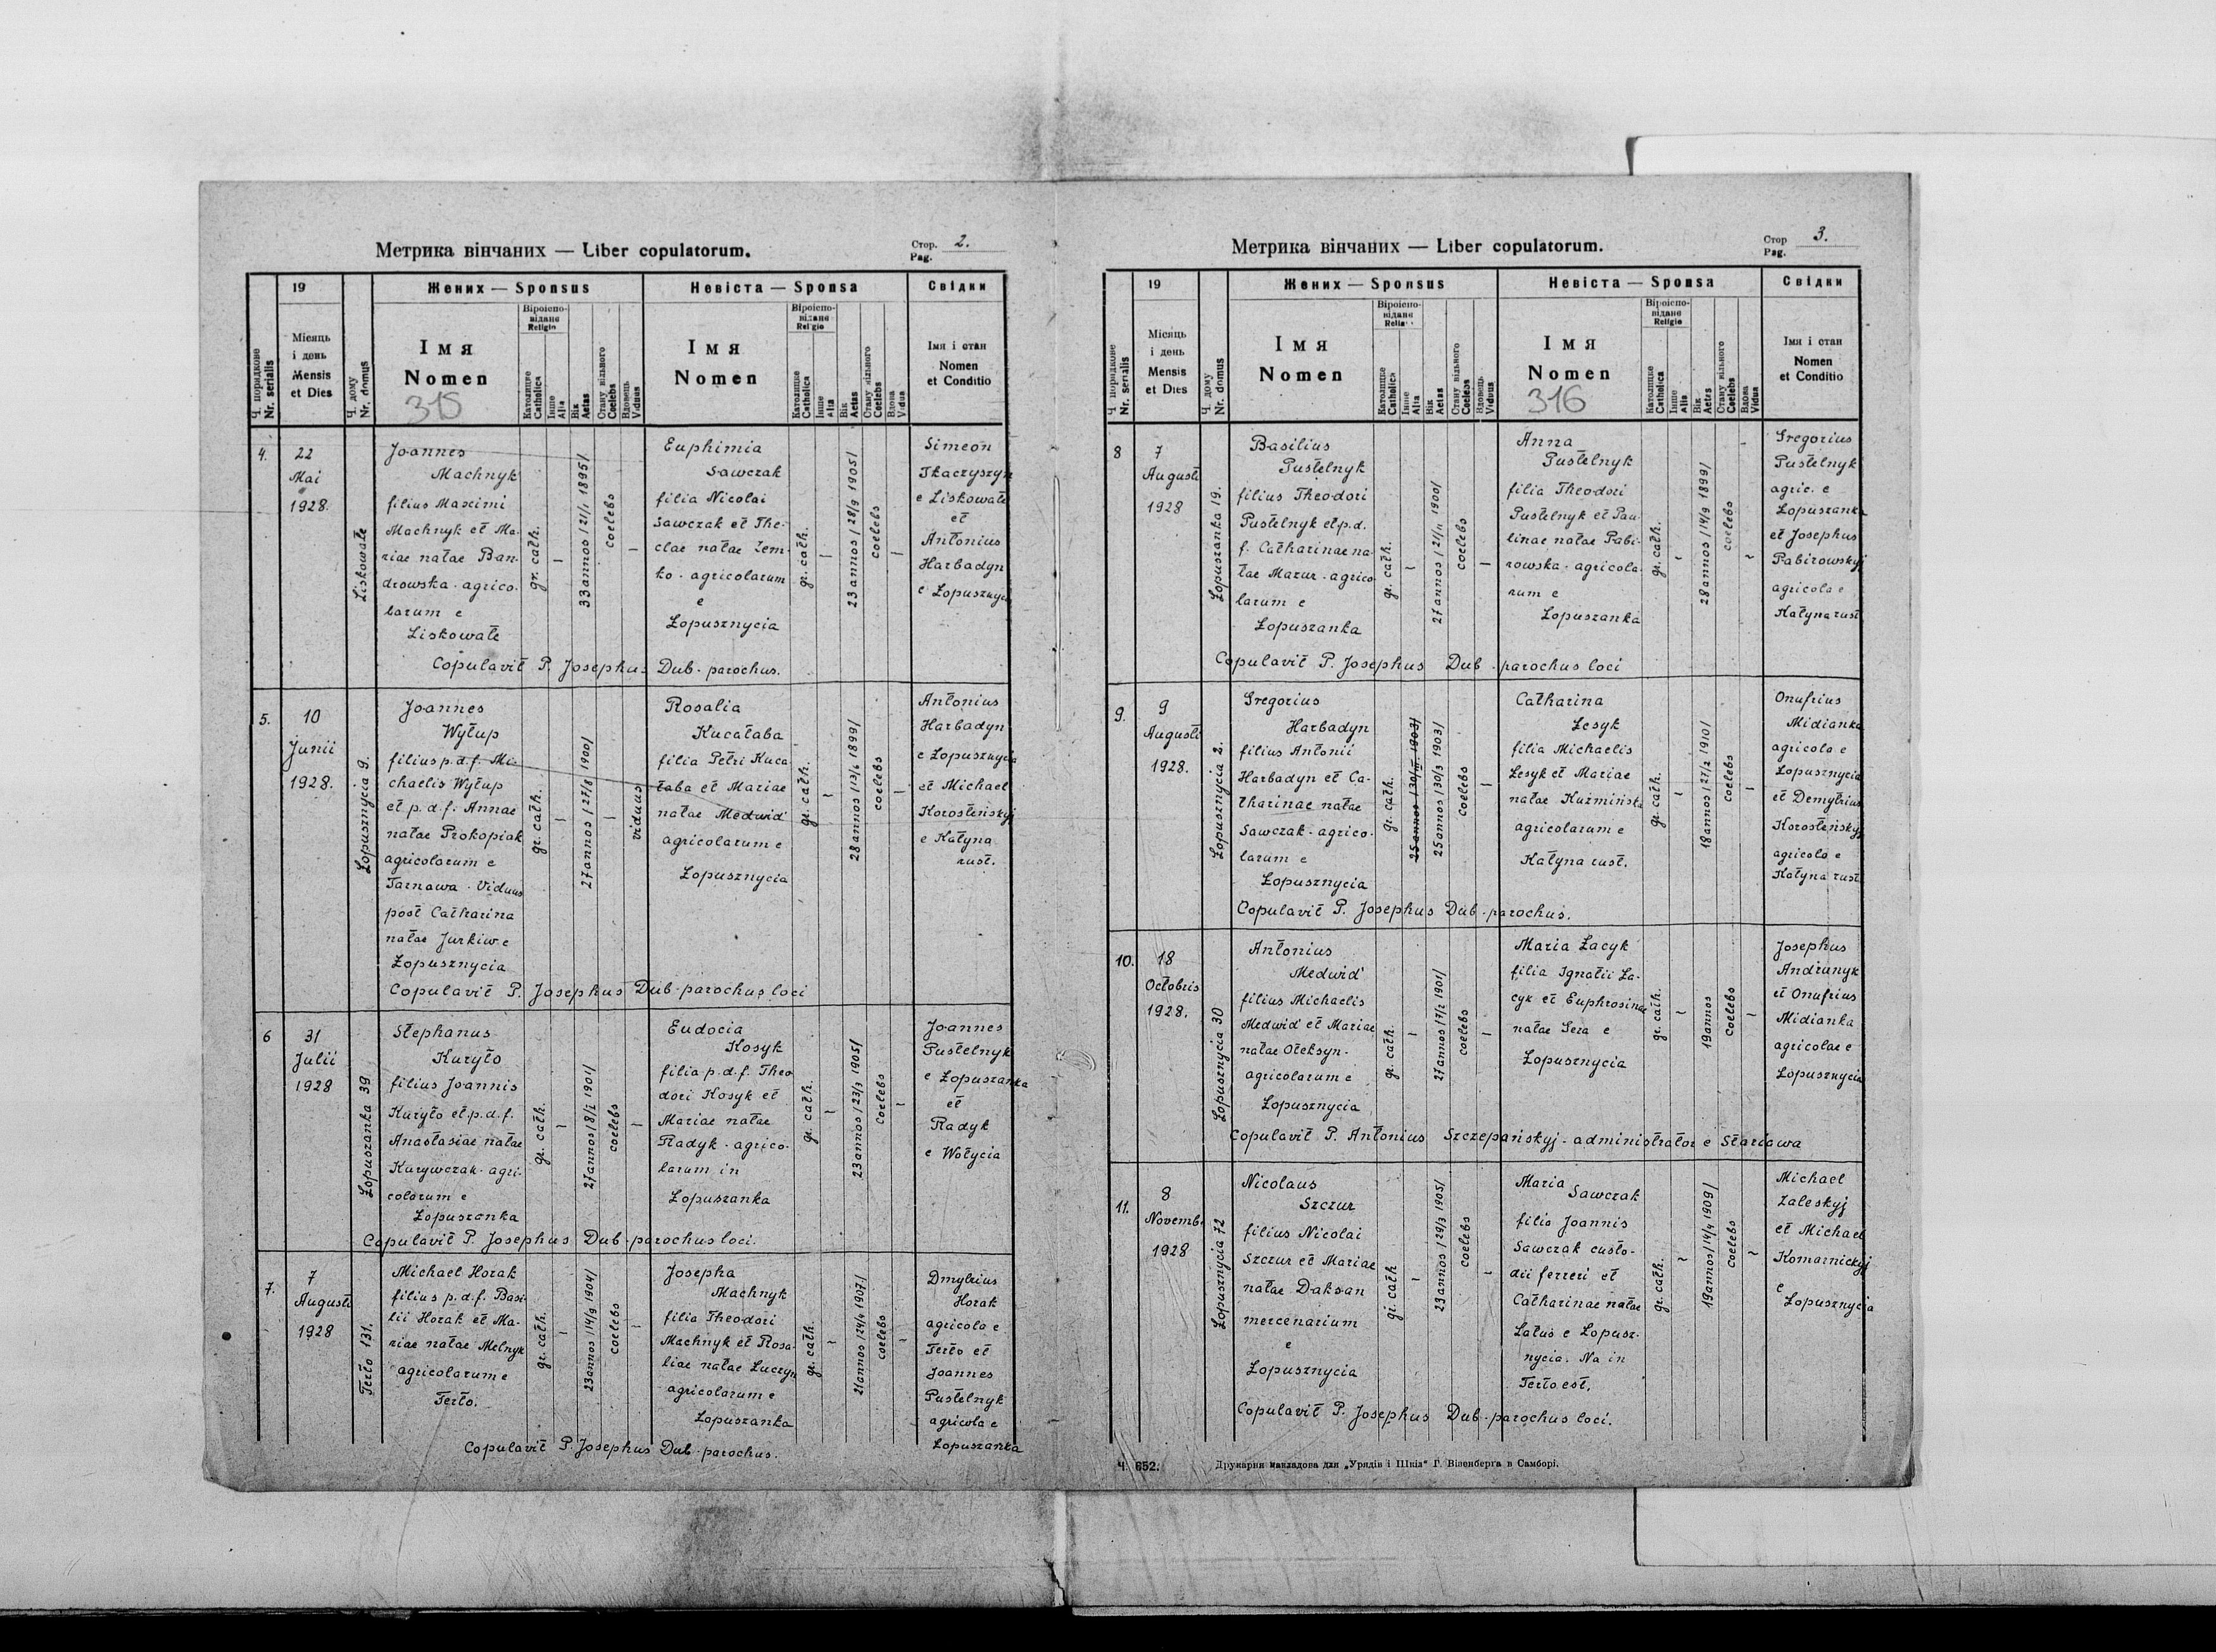 Метрика вінчаних — Liber copulatorum.
Стор. 2.
Pag.
19
Жених — Sponsus
Невіста — Sponsa
Свідки
Ч. порядкове
Nr. serialis
Місяць
і день
Mensis
et Dies
Ч. дому
Nr. domus
Імя
Nomen
315
Віроіспо-
відане
Religio
Католицке
Catholica
Інше
Alia
Вік
Aetas
Стану вільного
Coelebs
Вдовець
Viduus
Імя
Nomen
Віроіспо-
відане
Religio
Католицке
Catholica
Інше
Alia
Вік
Aetas
Стану вільного
Coelebs
Вдова
Vidua
Імя і стан
Nomen
et Conditio
4.
22
Mai
1928.
Liskowate
Joannes
Machnyk
filius Maximi
Machnyk et Ma-
riae natae Ban-
drowska - agrico-
larum e
Liskowate
gr. cath.
—
33 annos /21/1 1895/
coelebs
—
Euphimia
Sawczak
filia Nicolai
Sawczak et The-
clae natae Zem-
ko - agricolarum
e
Łopusznycia
gr. cath.
—
23 annos /28/9 1905/
coelebs
—
Simeon
Tkaczyszyn
e Liskowate
et
Antonius
Harbadyn
e Łopusznycia
Copulavit P. Josephus Dub - parochus.
5.
10
Junii
1928.
Łopusznycia 9.
Joannes
Wytup
filius p.d.f. Mi-
chaelis Wytup
et p.d.f. Annae
natae Prokopiak
agricolarum e
Tarnawa - Viduus
post Catharina
natae Jurkiw e
Łopusznycia
gr. cath.
—
27 annos /27/8 1900/
—
viduus
Rosalia
Kucałaba
filia Petri Kuca
łaba et Mariae
natae Medwid'
agricolarum e
Łopusznycia
gr. cath.
—
28 annos /13/6 1899/
coelebs
—
Antonius
Harbadyn
e Łopusznycia
et Michael
Korosteńskyj
e Katyna
rust.
Copulavit P. Josephus Dub - parochus loci
6
31
Julii
1928
Łopuszanka 39
Stephanus
Kuryło
filius Joannis
Kuryło et p.d.f.
Anastasiae natae
Kurywczak - agri-
colarum e
Łopuszanka
gr. cath.
—
27 annos /8/2 1901/
coelebs
—
Eudocia
Kosyk
filia p.d.f. Theo
dori Kosyk et
Mariae natae
Hadyk - agrico-
larum in
Łopuszanka
gr. cath.
—
23 annos /23/3 1905/
coelebs
—
Joannes
Pustelnyk
e Łopuszanka
et
Hadyk
e Wołycia
Copulavit P. Josephus Dub - parochus loci.
7.
7
Augusti
1928
Terło 131.
Michael Horak
filius p.d.f. Basi-
lii Horak et Ma-
riae natae Melnyk
agricolarum e
Terło.
gr. cath.
—
23 annos /14/9 1904/
coelebs
—
Josepha
Machnyk
filia Theodori
Machnyk et Rosa-
liae natae Łuczyn
agricolarum e
Łopuszanka
gr. cath.
—
21 annos /24/4 1907/
coelebs
—
Dmytrius
Horak
agricola e
Terło et
Joannes
Pustelnyk
agricola e
Łopuszanka
Copulavit P. Josephus Dub - parochus.
Метрика вінчаних — Liber copulatorum.
Стор 3.
Pag.
19
Жених — Sponsus
Невіста — Sponsa
Свідки
Ч. порядкове
Nr. serialis
Місяць
і день
Mensis
et Dies
Ч. дому
Nr. domus
Імя
Nomen
Віроіспо-
відане
Католицке
Catholica
Інше
Alia
Вік
Aetas
Стану вільного
Coelebs
Вдовець
Viduus
Імя
Nomen
316
Віроіспо-
відане
Religio
Католицке
Catholica
Інше
Alia
Вік
Aetas
Стану вільного
Coelebs
Вдова
Vidua
Імя і стан
Nomen
et Conditio
8
7
Augusti
1928
Łopuszanka 19.
Basilius
Pustelnyk
filius Theodori
Pustelnyk et p.d.
f. Catharinae na-
tae Mazur - agrico
larum e
Łopuszanka
gr. cath.
—
27 annos /21/11 1900/
coelebs
—
Anna
Pustelnyk
filia Theodori
Pustelnyk et Pau-
linae natae Pabi-
rowska - agricola-
rum e
Łopuszanka
gr. cath.
—
28 annos /14/9 1899/
coelebs
—
Gregorius
Pustelnyk
agric. e
Łopuszanka
et Josephus
Pabirowskyj
agricola e
Katyna rust
Copulavit P. Josephus Dub - parochus loci
9.
9
Augusti
1928.
Łopusznycia 2.
Gregorius
Harbadyn
filius Antonii
Harbadyn et Ca-
tharinae natae
Sawczak - agrico-
larum e
Łopusznycia
gr. cath.
25 annos /30/III 1903/
25 annos /30/3 1903/
coelebs
—
Catharina
Łesyk
filia Michaelis
Łesyk et Mariae
natae Kuźmińska
agricolarum e
Katyna rust.
gr. cath.
—
18 annos /27/2 1910/
coelebs
—
Onufrius
Midianka
agricola e
Łopusznycia
et Demytrius
Korosteńskyj
agricola e
Katyna rust
Copulavit P. Josephus Dub - parochus.
10.
18
Octobris
1928.
Łopusznycia 30
Antonius
Medwid'
filius Michaelis
Medwid' et Mariae
natae Ołeksyn -
agricolarum e
Łopusznycia
gr. cath.
—
27 annos /7/2 1901/
coelebs
—
Maria Łacyk
filia Ignatii Ła-
cyk et Euphrosinae
natae Sera e
Łopusznycia
gr. cath.
—
19 annos
coelebs
—
Josephus
Andrunyk
et Onufrius
Midianka
agricolae e
Łopusznycia
Copulavit P. Antonius Szczepańskyj - administrator e Stariawa
11.
8
Novemb.
1928
Łopusznycia 72
Nicolaus
Szczur
filius Nicolai
Szczur et Mariae
natae Daksan
mercenarium
e
Łopusznycia
gr. cath
—
23 annos /29/3 1905/
coelebs
—
Maria
Sawczak
filia Joannis
Sawczak custo-
dii ferreri et
Catharinae natae
Łatus e Łopusz-
nycia. Na in
Terło est.
gr. cath.
—
19 annos /14/4 1909/
coelebs
—
Michael
Zaleskyj
et Michael
Komarnickyj
e
Łopusznycia
Copulavit P. Josephus Dub - parochus loci.
Ч. 652.
Друкарня накладова для „Урядів і Шкіл" Г. Візенберґа в Самборі.